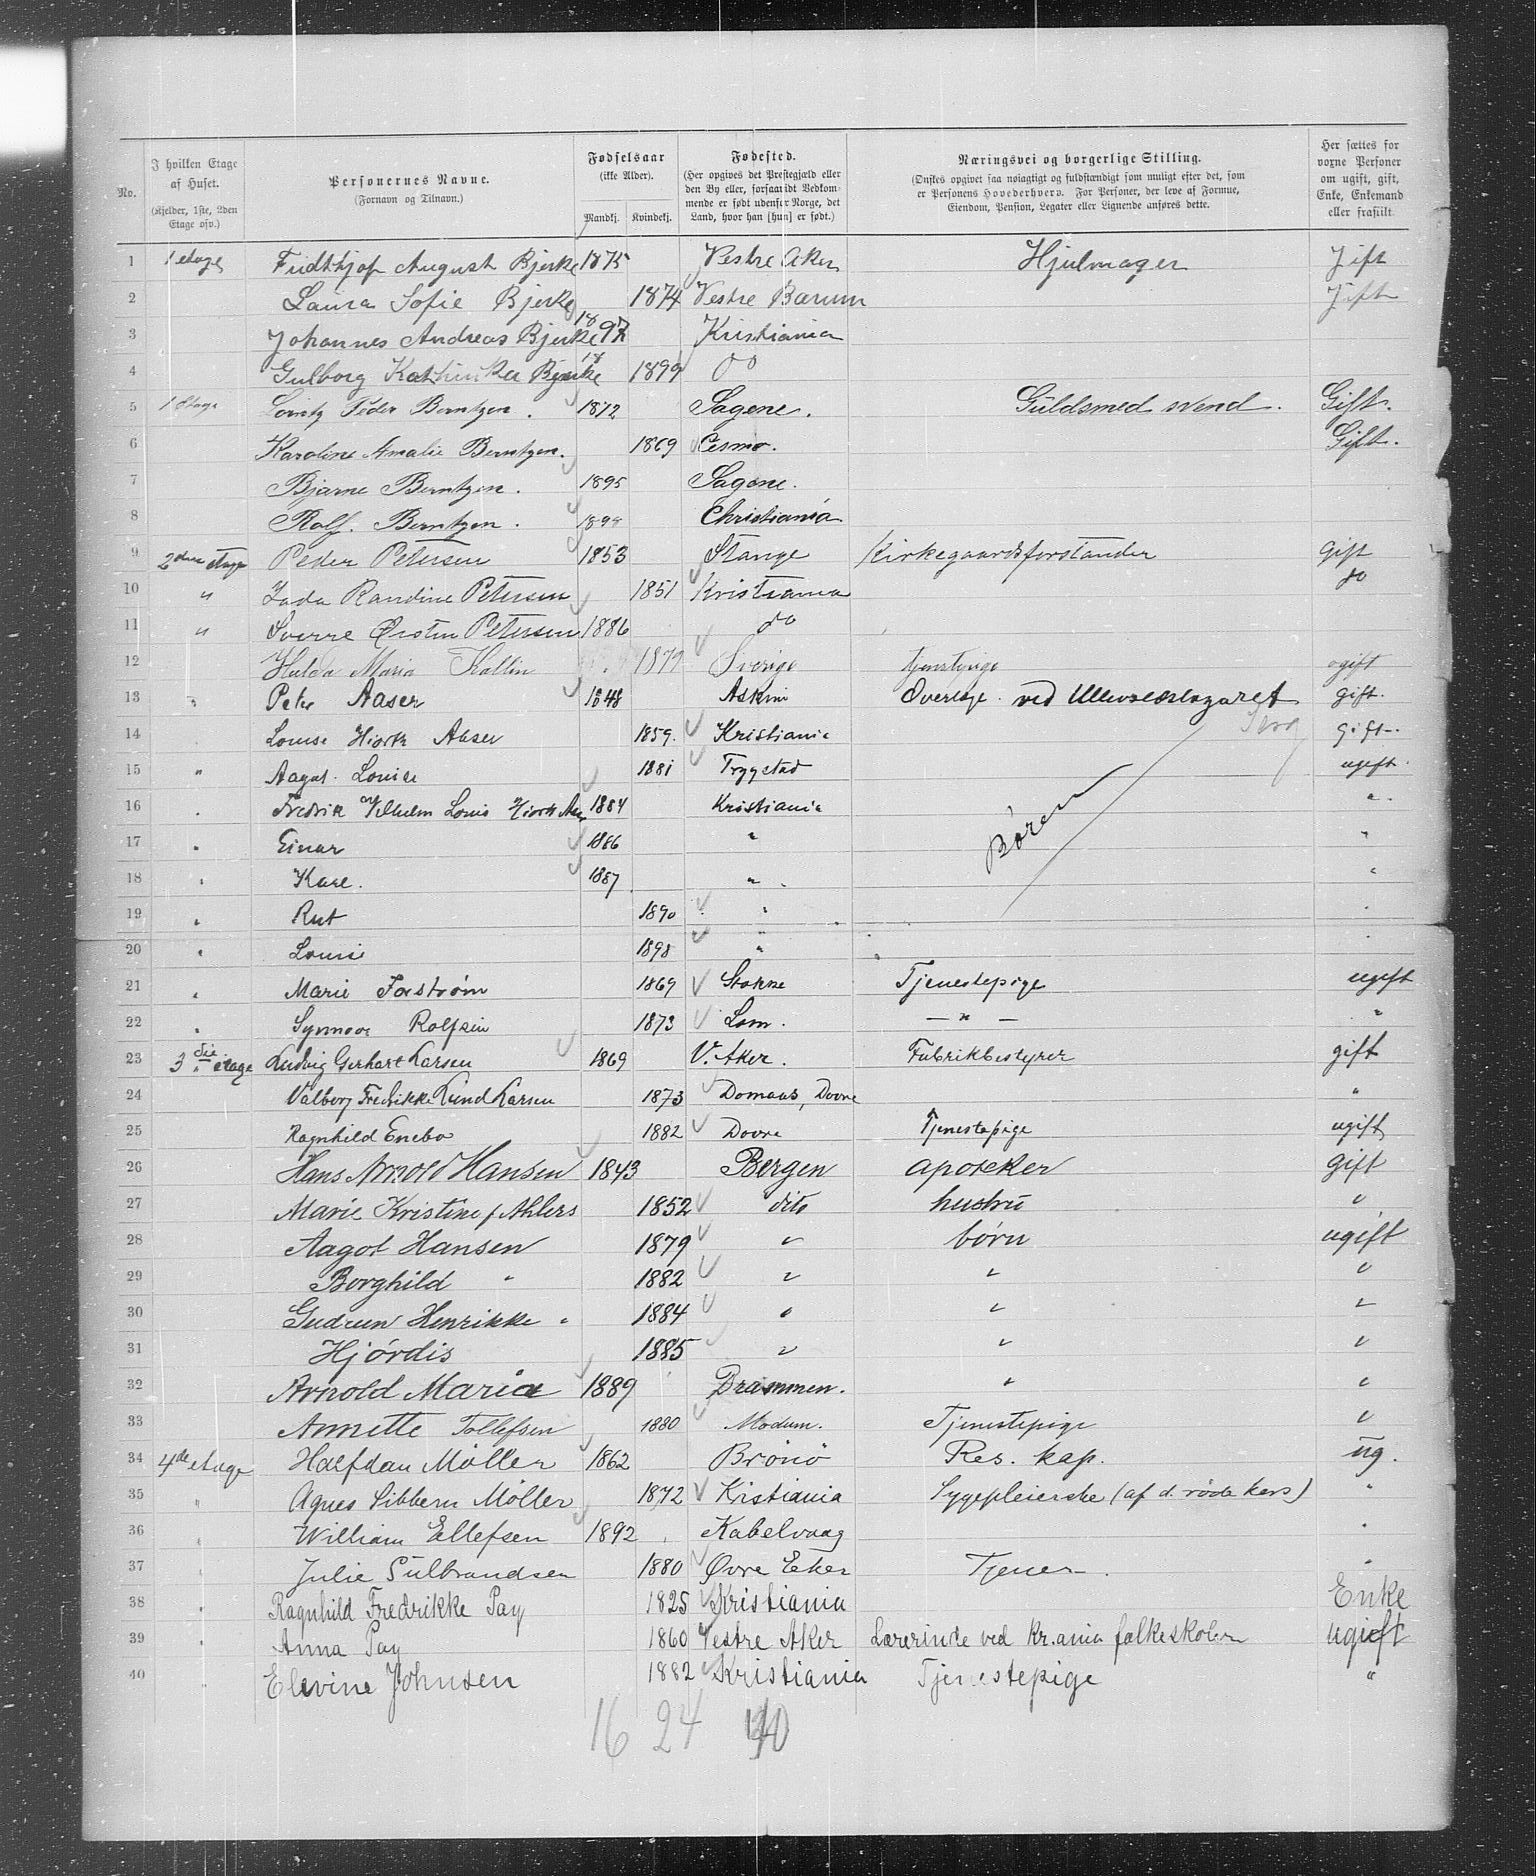 No. I hvilken Etage af Huset. (Kjelder, 1ste, 2den Etage osv.) Personernes Navne. (Fornavn og Tilnavn.) Fødselsaar (ikke Alder). Mandkj. Kvindekj. Fødested. (Her opgives det Prestegjæld eller den By eller, forsaavidt Vedkommende er født udenfor Norge, det Land, hvor han [hun] er født.) Næringsvei og borgerlige Stilling. (Ønskes opgivet saa nøiagtigt og fuldstændigt som muligt efter det, som er Personens Hovederhverv. For Personer, der leve af Formue, Eiendom, Pension, Legater eller Lignende anføres dette. Her sættes for voxne Personer om ugift, gift, Enke, Enkemand eller fraskilt.
1 1 etage Fridthjof August Bjerke 1875 Vestre Aker Hjulmager Gift
2 Laura Sofie Bjerke 1874 Vestre Bærum Gift
3 Johannes Andreas Bjerke 1897 Kristiania
4 Gulborg Kathinka Bjerke 1899 do
5 1 Etage Lorntz Peder Berntzen. 1872 Sagene. Guldsmed svend. Gift.
6 Karoline Amalie Berntzen. 1869 Gift.
7 Bjarne Berntzen. 1895 Sagene.
8 Rolf. Berntzen. Christiania
9 2den etage Peder Petersen 1853 Stange Kirkegaardsforstander gift
10 " Randine Petersen 1851 Kristiania do
11 " Sverre Ørsten Petersen 1886 do
12 Hulda Maria Kallin Sverige ugift
13 " Peter Aaser 1848 Askim Overlæge ved Ullevoldslazaret gift.
14 Louise Hiorth Aaser 1859. Kristiania gift.
15 " Aagot Louise 1881 Trygstad Børn ugift.
16 " Fredrik Vilhelm Louis Hiorth Aaser 1884 Kristiania "
17 " Einar 1886 " "
18 " Kare. 1887 " "
19 " Rut 1890 "
20 " Louise 1898 "
21 " Marie Forstrøm 1869 Stokke Tjenestepige ugift
22 " Synnøve Rolfsen 1873 Lom. — " — "
23 3die etage Ludvig Gerhart Larsen 1869 V. Aker. Fabrikbestyrer gift
24 Valborg Fredrikke Lund Larsen 1873 Domaas, Dovre "
25 Ragnhild Enebo 1882 Dovre Tjenestepige ugift
26 Hans Arnold Hansen 1843 Bergen apoteker gift
27 Marie Kristine f Ahlers 1852 dito hustru "
28 Aagot Hansen 1879 " børn ugift
29 Borghild " 1882 " " "
30 Gudrun Henrikke " 1884 " " "
31 Hjørdis 1885 " " "
32 Arnold Maria 1889 Drammen. " "
33 Annette Tollefsen 1880 Modum. Tjenestepige "
34 4de etage Halfdan Møller 1862 Brønø Res. kap. ug.
35 " Agnes Sibbern Møller 1872 Kristiania Sygepleierske (af d. røde kors) "
36 " William Ellefsen 1892 Kabelvaag "
37 " Julie Gulbrandsen 1880 Øvre Eker Tjener. "
38 " Ragnhild Fredrikke Pay 1825 Kristiania Enke
39 " Anna Pay 1860 Vestre Aker Lærerinde ved Kr.ania folkeskoler ugift
40 " Elevine Johnsen 1882 Kristiania Tjenestepige "
16 24 40